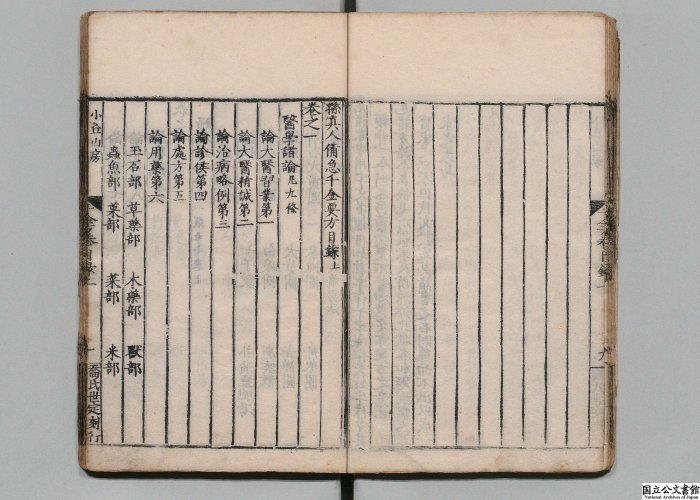 孫真人備急千金要方目錄上
卷之一
醫學諸論凡九條
論大醫習業第一
論大醫精誠第二
論治病略例第三
論診候第四
論處方第五
論用藥第六
玉石部 草藥部 木藥部 獸部
蟲魚部 菓部 菜部 米部
小丘山房
喬氏世定刻行
国立公文書館
National Archives of Japan